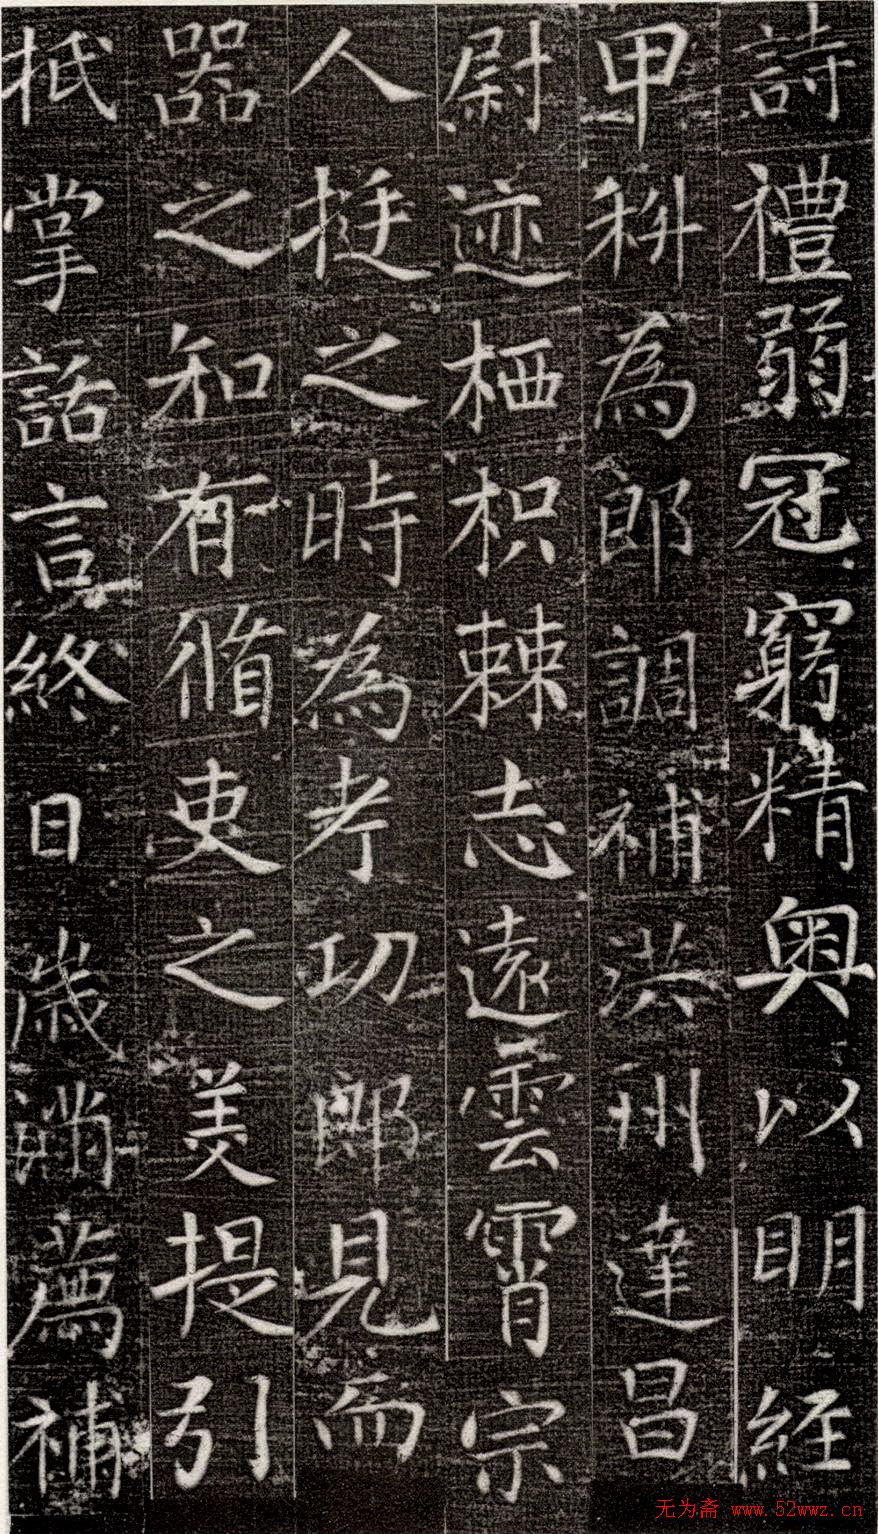 詩禮弱冠窮精奥以明經
甲科為郎調補洪州達昌
尉迹栖枳棘志遠雲霄宗
人挺之時為考功郎見而
器之知有脩吏之美提引
抵掌話言終日歲滿薦補
无为斋 www.52wwz.cn